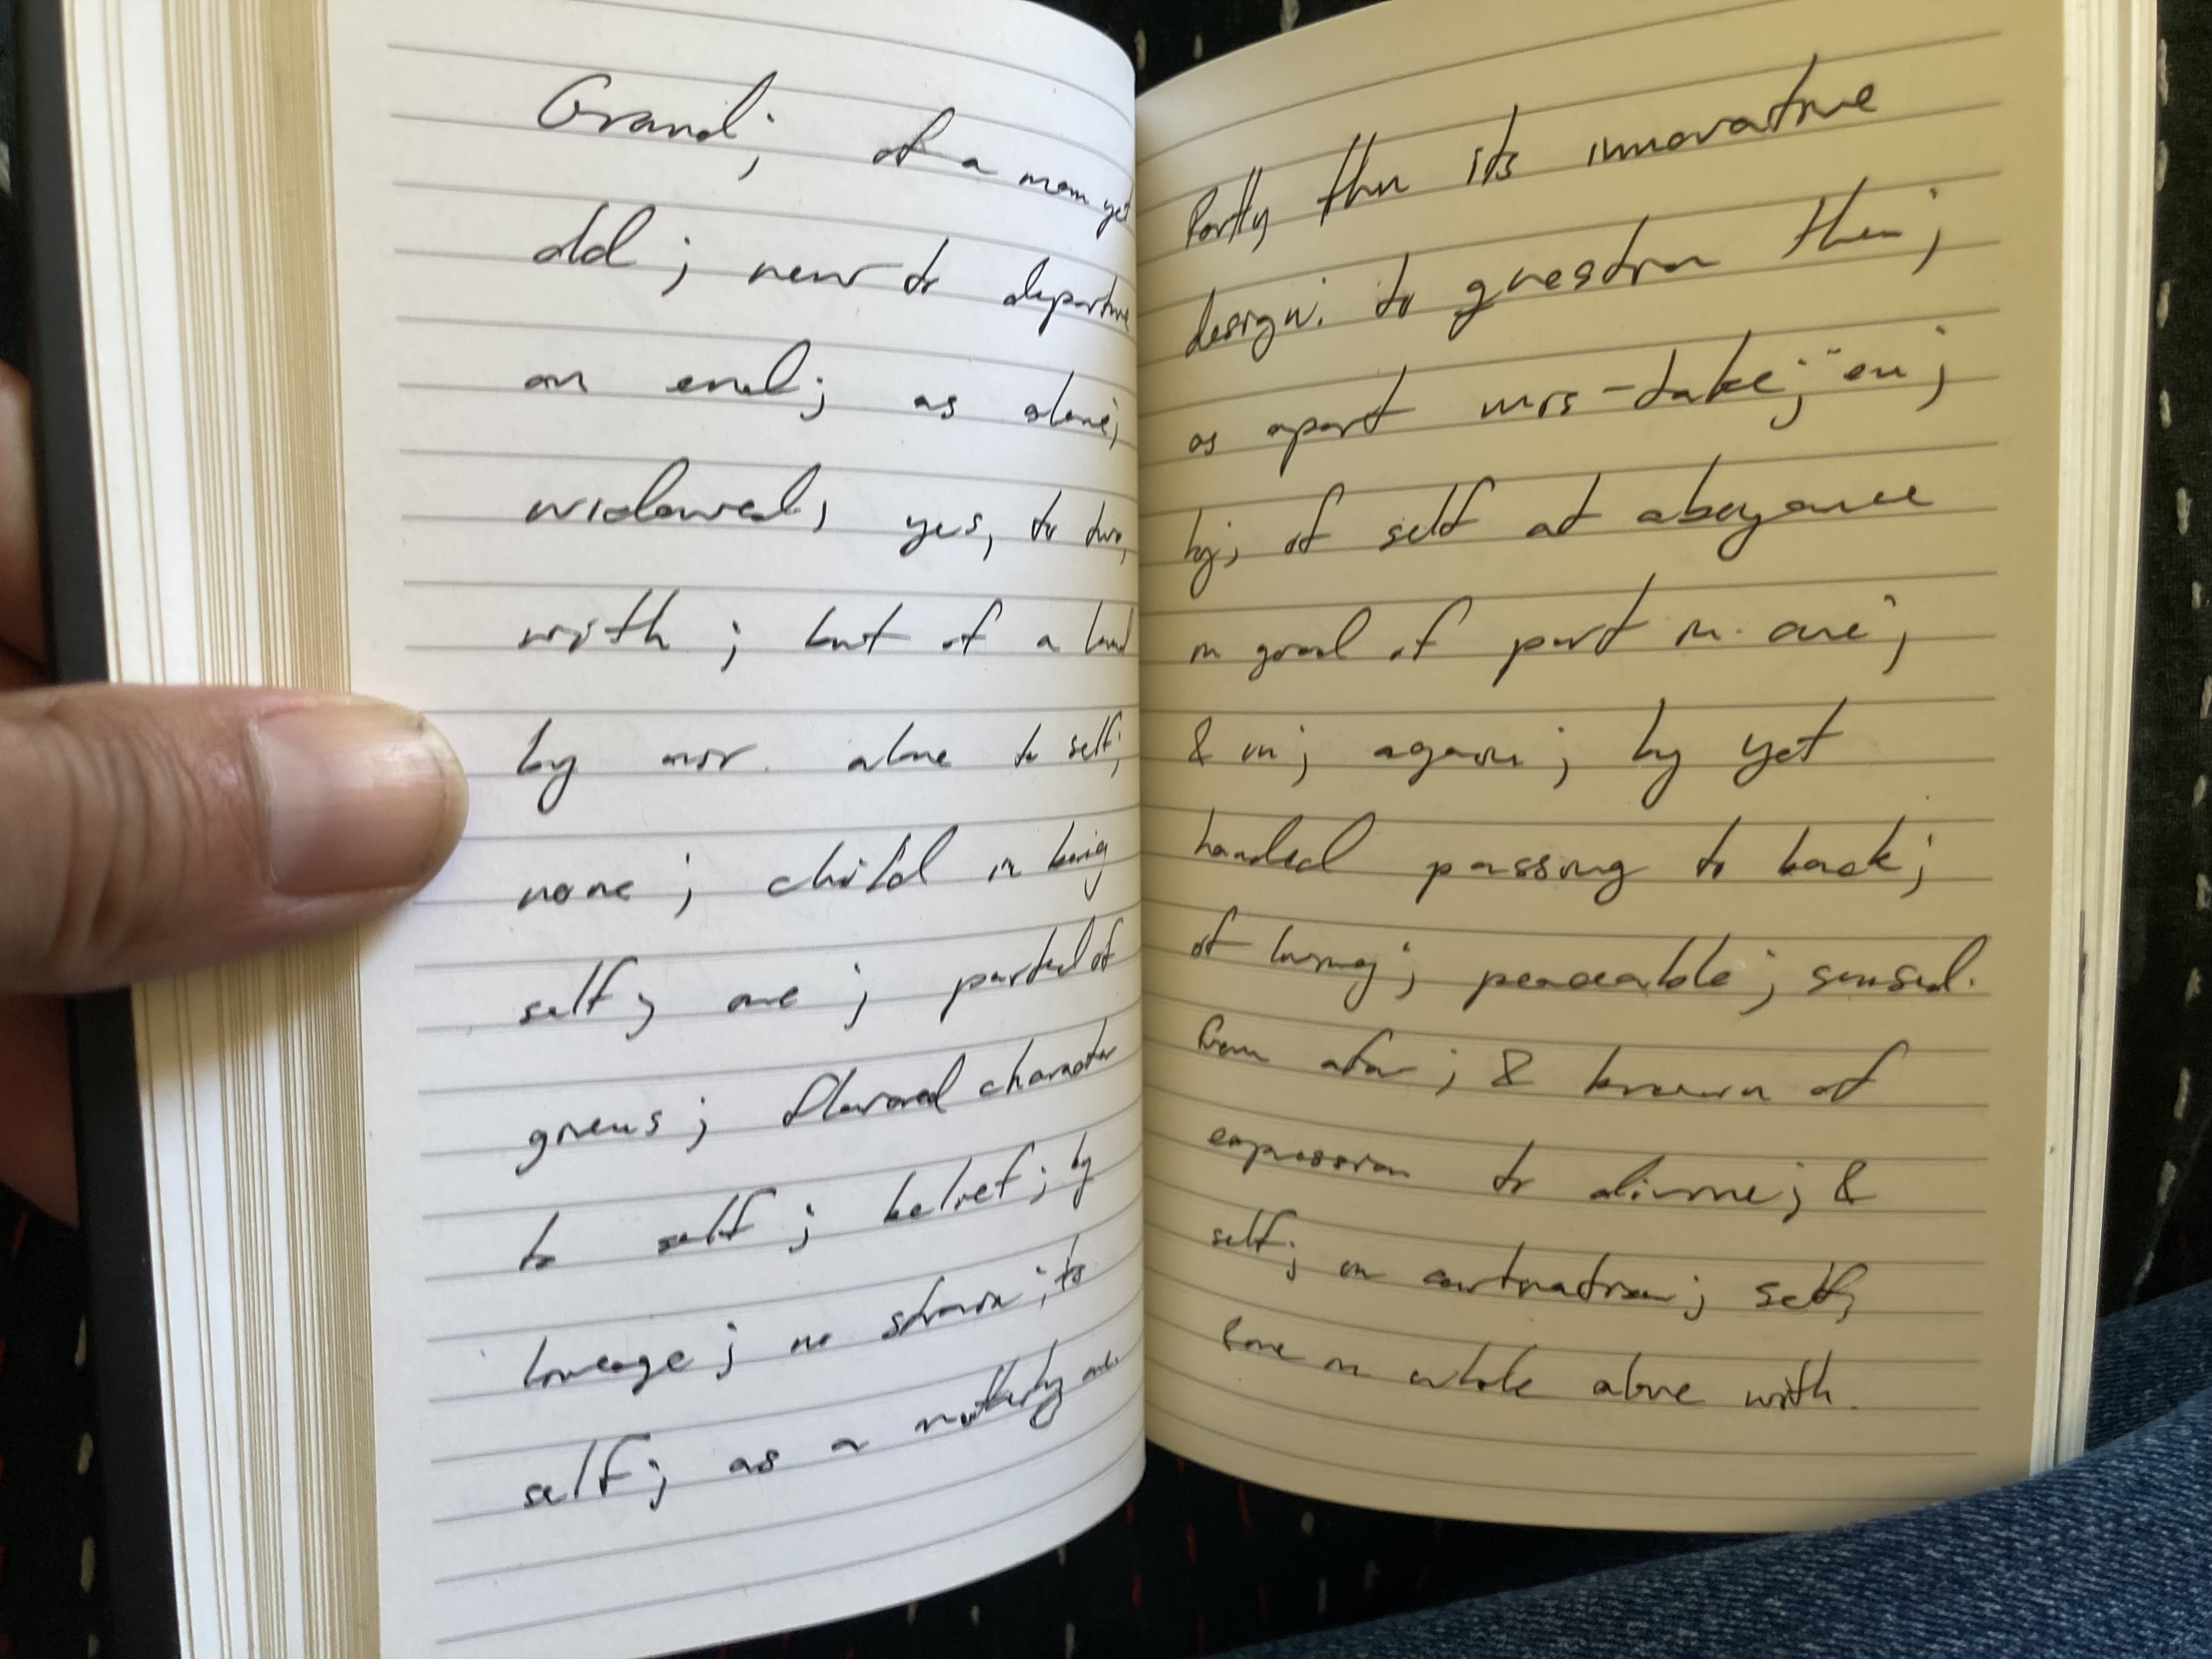 Grand; of a man yet
old; new to departure
an end; as alone;
widowed, yes, to two,
with; but of a
by nor alone to self;
none; child in being
self; one; parted of
; flavored character
to self; belief; by
lineage; no strain; to
self; as a nothing
Partly thru its innovative
design. to question then;
as apart mis-take; en;
by; of self at abeyance
in good of part in one;
& in; again; by yet
handed passing to back;
of living; peaceable; sensed.
from afar; & known of
expression to divine; &
self; in continuation; self;
in whole alone with.